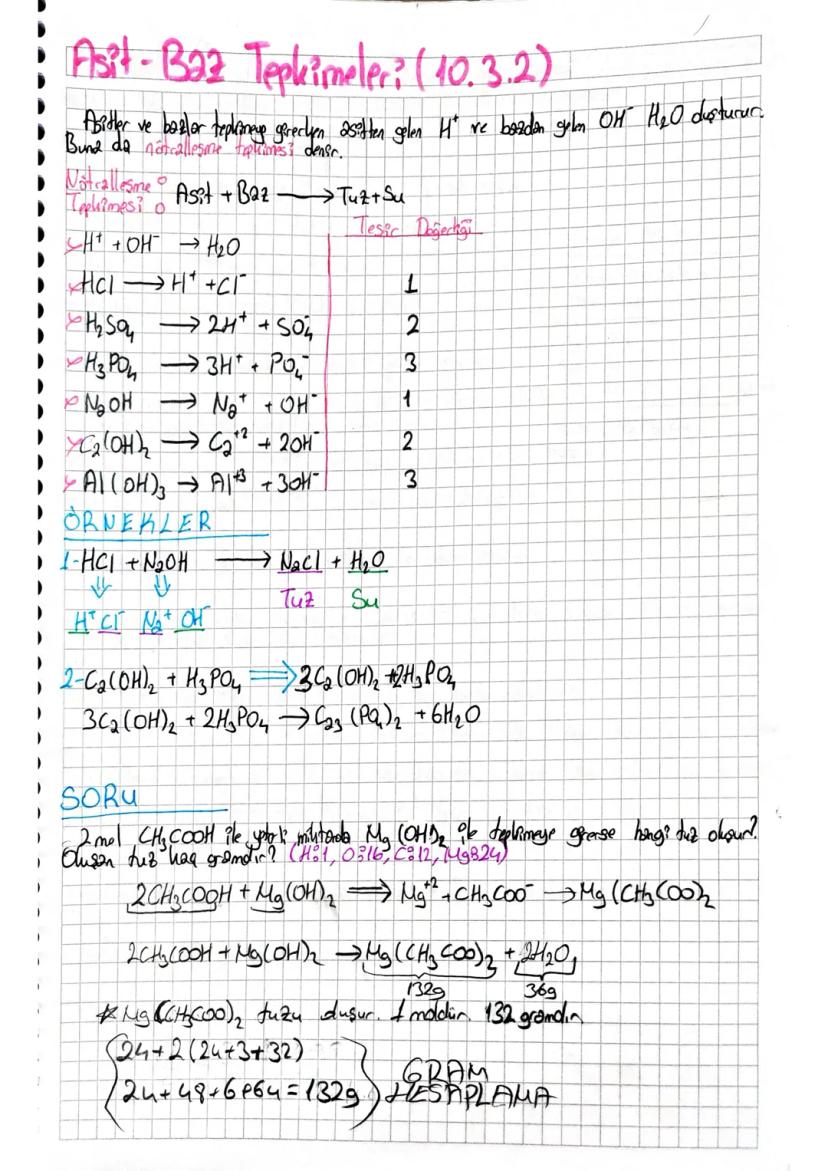 Asit-Baz Tepkimeleri (10.3.2)
Asitler ve bazlar tepkimeye girerken asitten gelen H⁺ ve bazdan gelen OH⁻ H₂O oluşturur.
Buna da nötralleşme tepkimesi denir.
Nötralleşme Tepkimesi: Asit + Baz ⟶ Tuz + Su
Tesir Değerliği
H⁺ + OH⁻ → H₂O
HCl ⟶ H⁺ + Cl⁻ 1
H₂SO₄ ⟶ 2H⁺ + SO₄⁻ 2
H₃PO₄ ⟶ 3H⁺ + PO₄⁻ 3
NaOH ⟶ Na⁺ + OH⁻ 1
Ca(OH)₂ ⟶ Ca⁺² + 2OH⁻ 2
Al(OH)₃ → Al⁺³ + 3OH⁻ 3
ÖRNEKLER
1-HCl + NaOH ⟶ NaCl + H₂O
⇓ ⇓ Tuz Su
H⁺Cl⁻ Na⁺ OH⁻
2-Ca(OH)₂ + H₃PO₄ ⟹ 3Ca(OH)₂ + 2H₃PO₄
3Ca(OH)₂ + 2H₃PO₄ → Ca₃(PO₄)₂ + 6H₂O
SORU
2 mol CH₃COOH ile yeterli miktarda Mg(OH)₂ ile tepkimeye girerse hangi tuz oluşur?
Oluşan tuz kaç gramdır? (H:1, O:16, C:12, Mg:24)
2CH₃COOH + Mg(OH)₂ ⟹ Mg⁺² + CH₃COO⁻ → Mg(CH₃COO)₂
2CH₃COOH + Mg(OH)₂ → Mg(CH₃COO)₂ + 2H₂O
132g 36g
* Mg(CH₃COO)₂ tuzu oluşur. 1 moldür. 132 gramdır
24+2(24+3+32)
24+48+6+64=132g
GRAM
HESAPLAMA